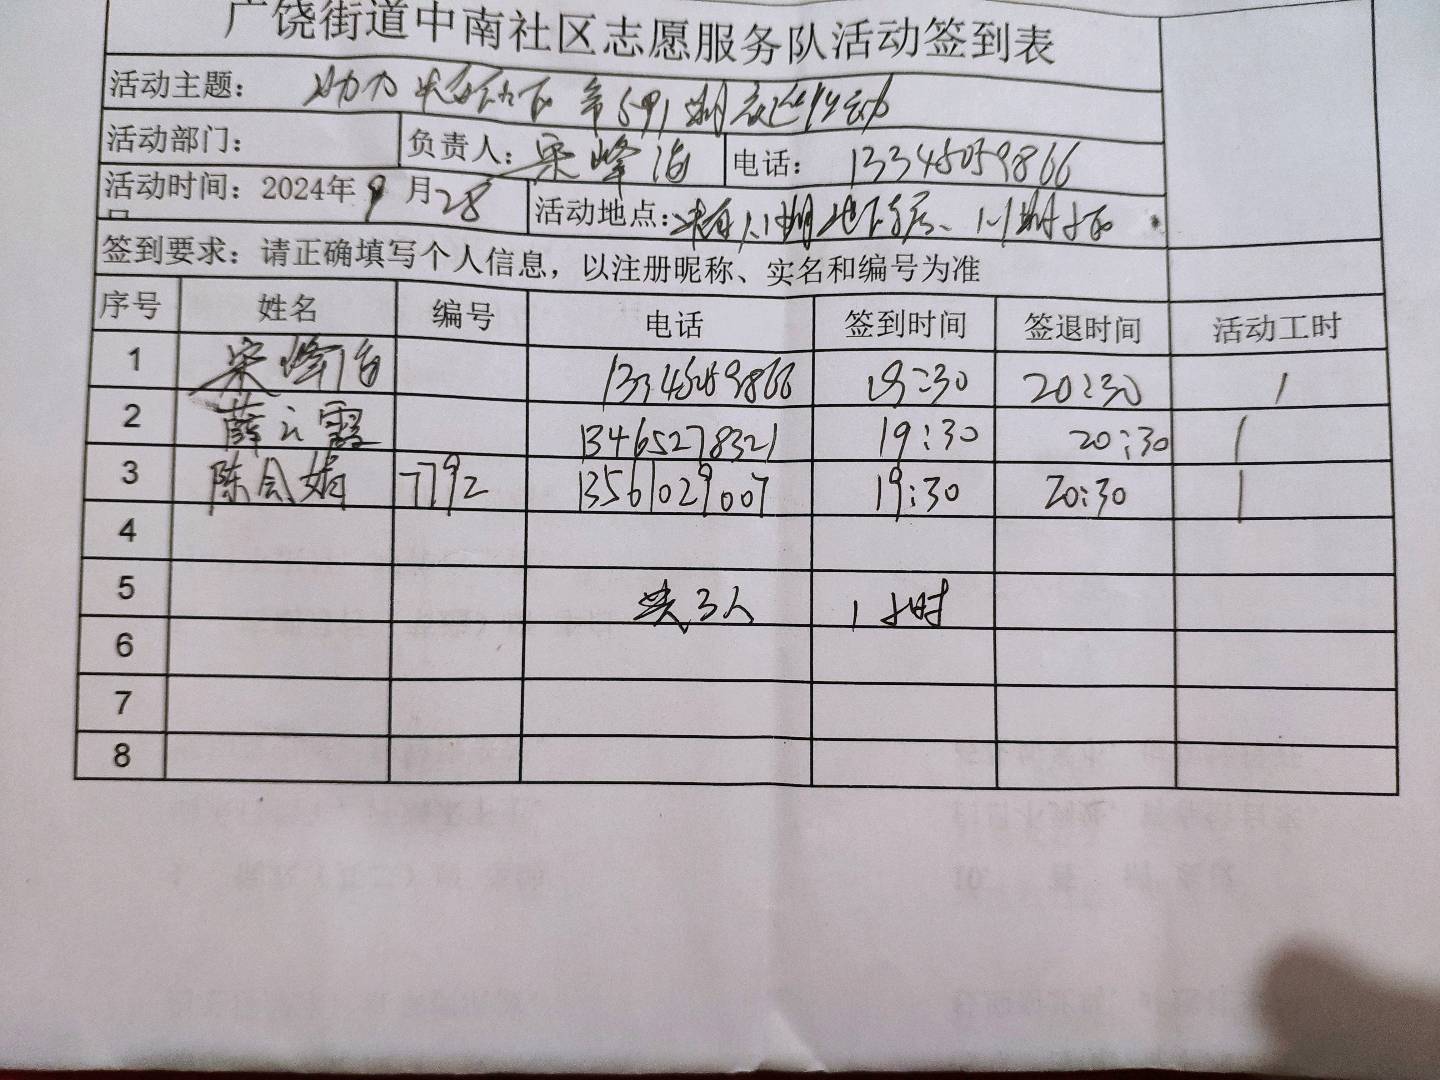 广饶街道中南社区志愿服务队活动签到表
活动主题： 助力 第591期
活动部门： 负责人： 峰海 电话： 13345059866
活动时间：2024年9月28 活动地点：
签到要求：请正确填写个人信息，以注册昵称、实名和编号为准
序号 姓名 编号 电话 签到时间 签退时间 活动工时
1 峰海 13345059866 19:30 20:30 1
2 薛云霞 13465278321 19:30 20:30 1
3 陈会娟 7792 13561029007 19:30 20:30 1
4
5 共3人 1小时
6
7
8